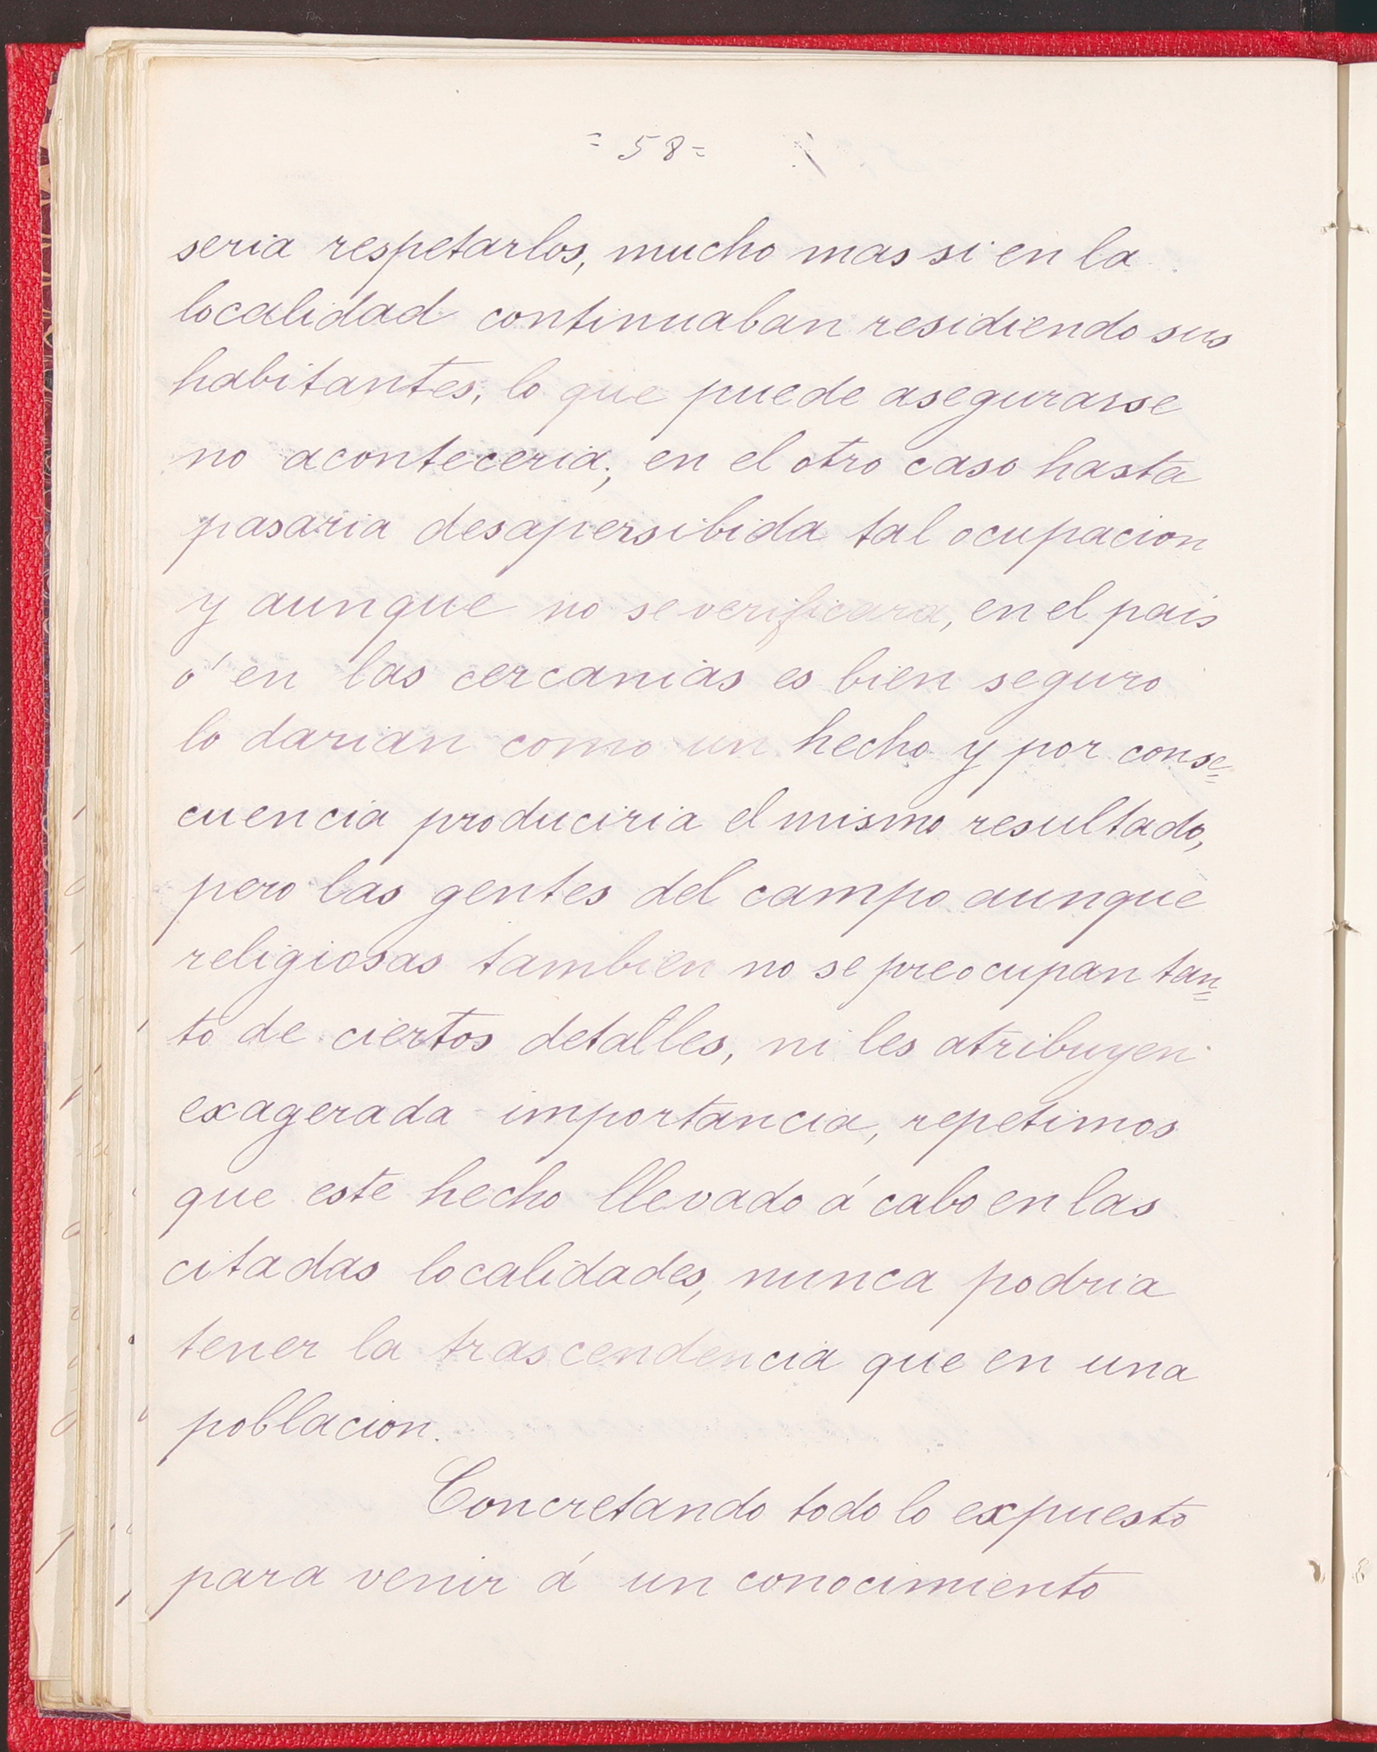 = 58 =
seria respetarlos, mucho mas si en la
localidad continuaban residiendo sus
habitantes, lo que puede asegurarse
no aconteceria; en el otro caso hasta
pasaria desapersibida tal ocupacion
y aunque no se verificara, en el pais
ó en las cercanias es bien seguro
lo darian como un hecho y por conse=
cuencia produciria el mismo resultado,
pero las gentes del campo aunque
religiosas tambien no se preocupan tan=
to de ciertos detalles, ni les atribuyen
exagerada importancia, repetimos
que este hecho llevado á cabo en las
citadas localidades, nunca podria
tener la trascendencia que en una
poblacion.
Concretando todo lo expuesto
para venir á un conocimiento